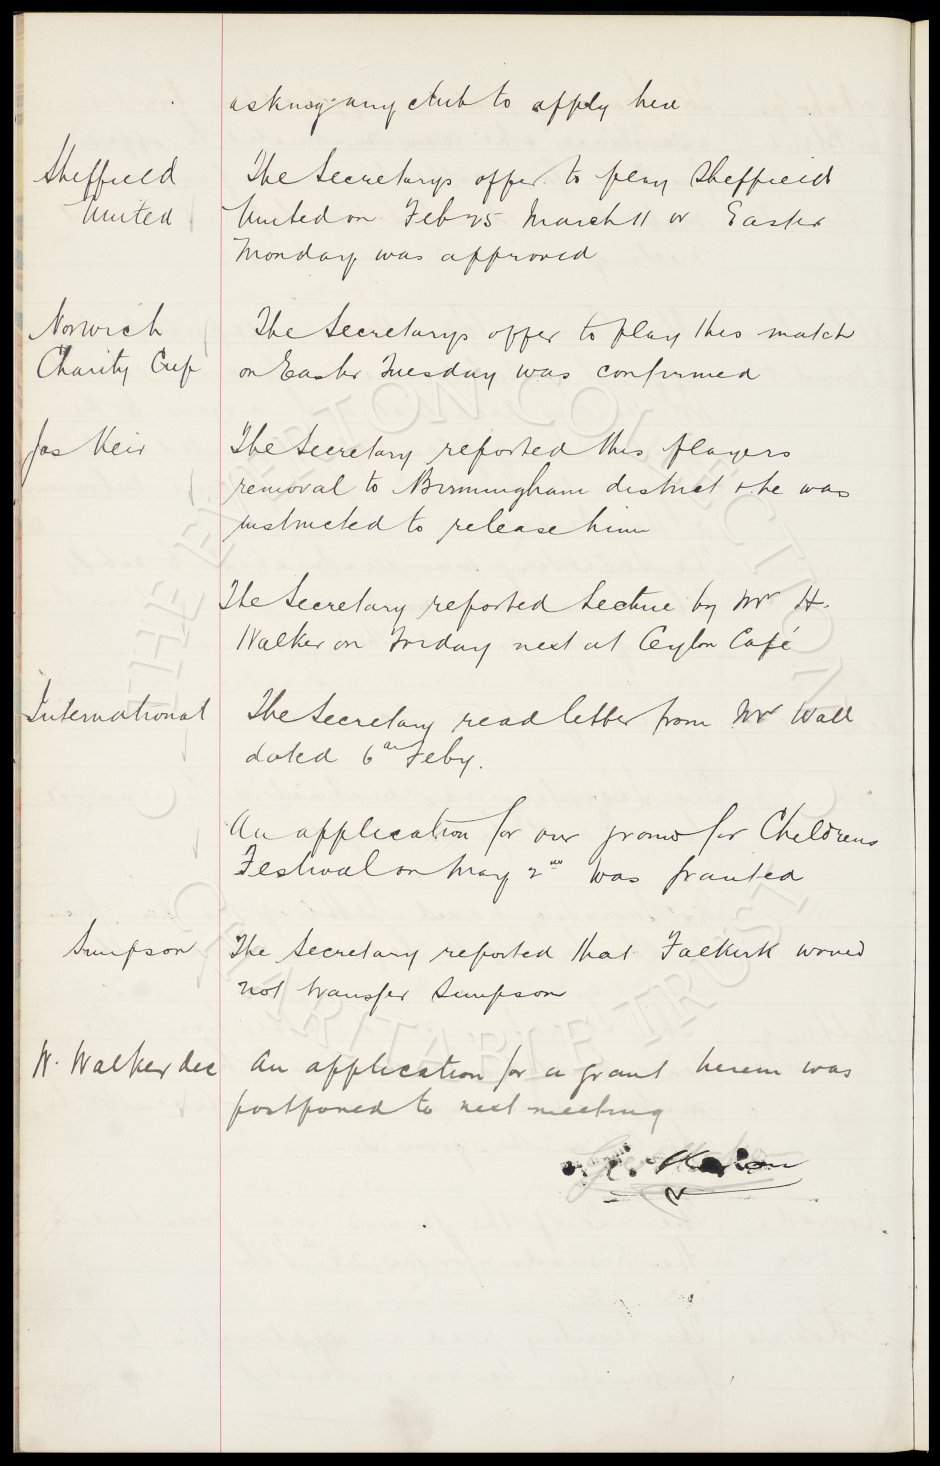 asking any club to apply here
Sheffield
United
The Secretarys offer to play Sheffield
United on Feb 25 March 11 or Easter
Monday was approved
Norwich
Charity Cup
The Secretarys offer to play this match
on Easter Tuesday was confirmed
Jas Weir
The Secretary reported this players
removal to Birmingham district & he was
instructed to release him
The Secretary reported Lecture by Mr H.
Walker on Friday next at Ceylon Café
International
The Secretary read letter from Mr Wall
dated 6th Feby.
An application for our ground for Childrens
Festival on May 2nd was granted
Simpson
The Secretary reported that Falkirk would
not transfer Simpson
W. Walker dec
An application for a grant herein was
postponed to next meeting
© THE EVERTON COLLECTION
CHARITABLE TRUST